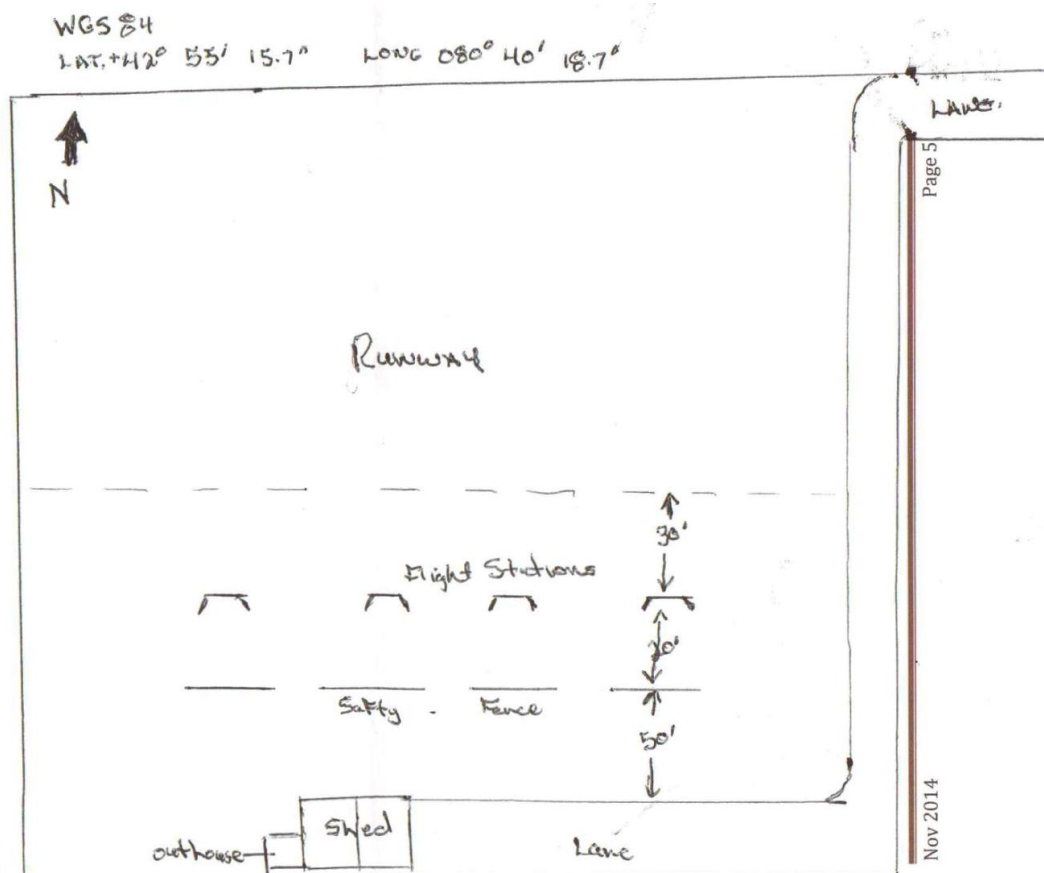 WGS 84
LAT. +42° 55' 15.7" LONG 080° 40' 18.7"
LANE
N
Page 5
Runway
30'
Flight Stations
20'
Safty Fence
50'
Shed
outhouse
Lane
Nov 2014